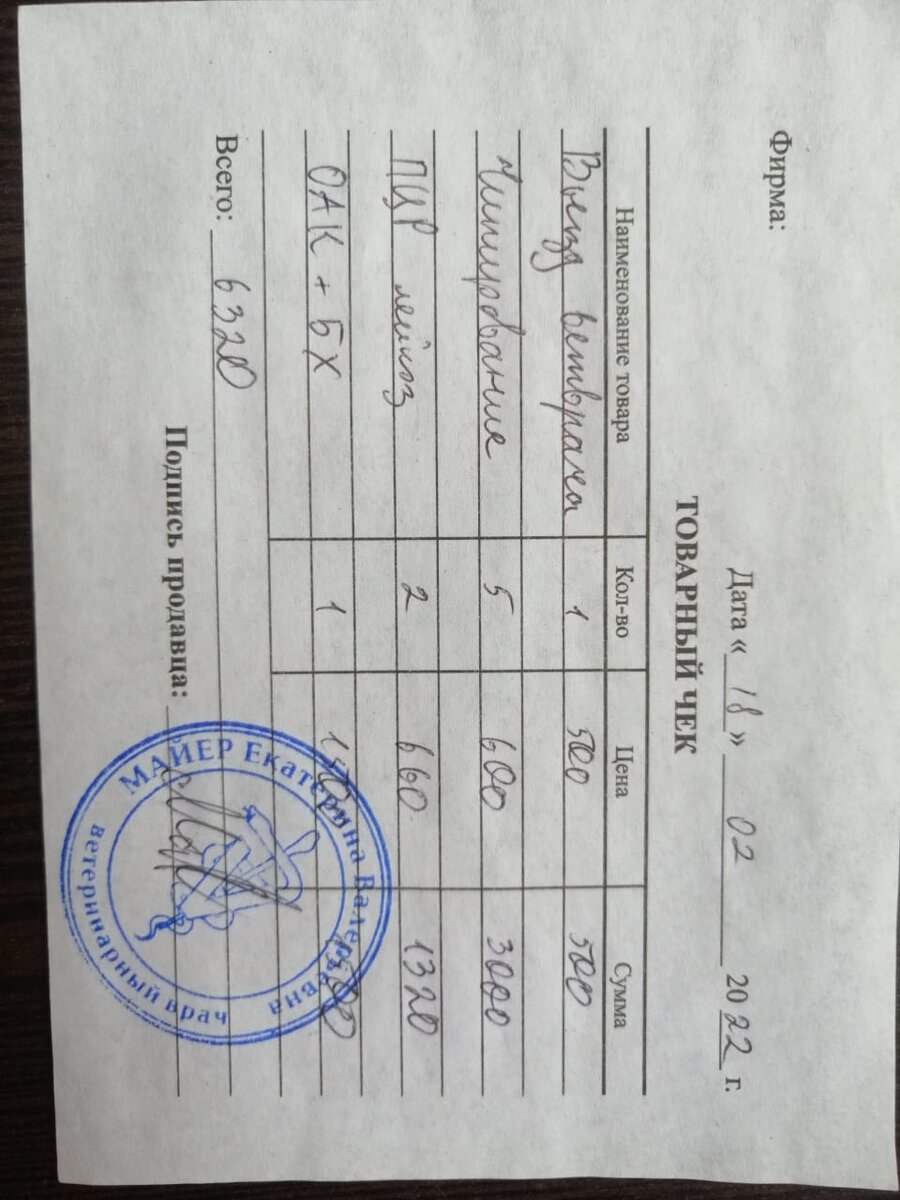 Фирма:
Дата « 18 » 02 2022 г.
ТОВАРНЫЙ ЧЕК
Наименование товара Кол-во Цена Сумма
Выезд ветврача 1 500 500
Чипирование 5 600 3000
ПЦР лейкоз 2 660 1320
ОАК + БХ 1 1500 1500
Всего: 6320
Подпись продавца:
МАЙЕР Екатерина Валерьевна
ветеринарный врач